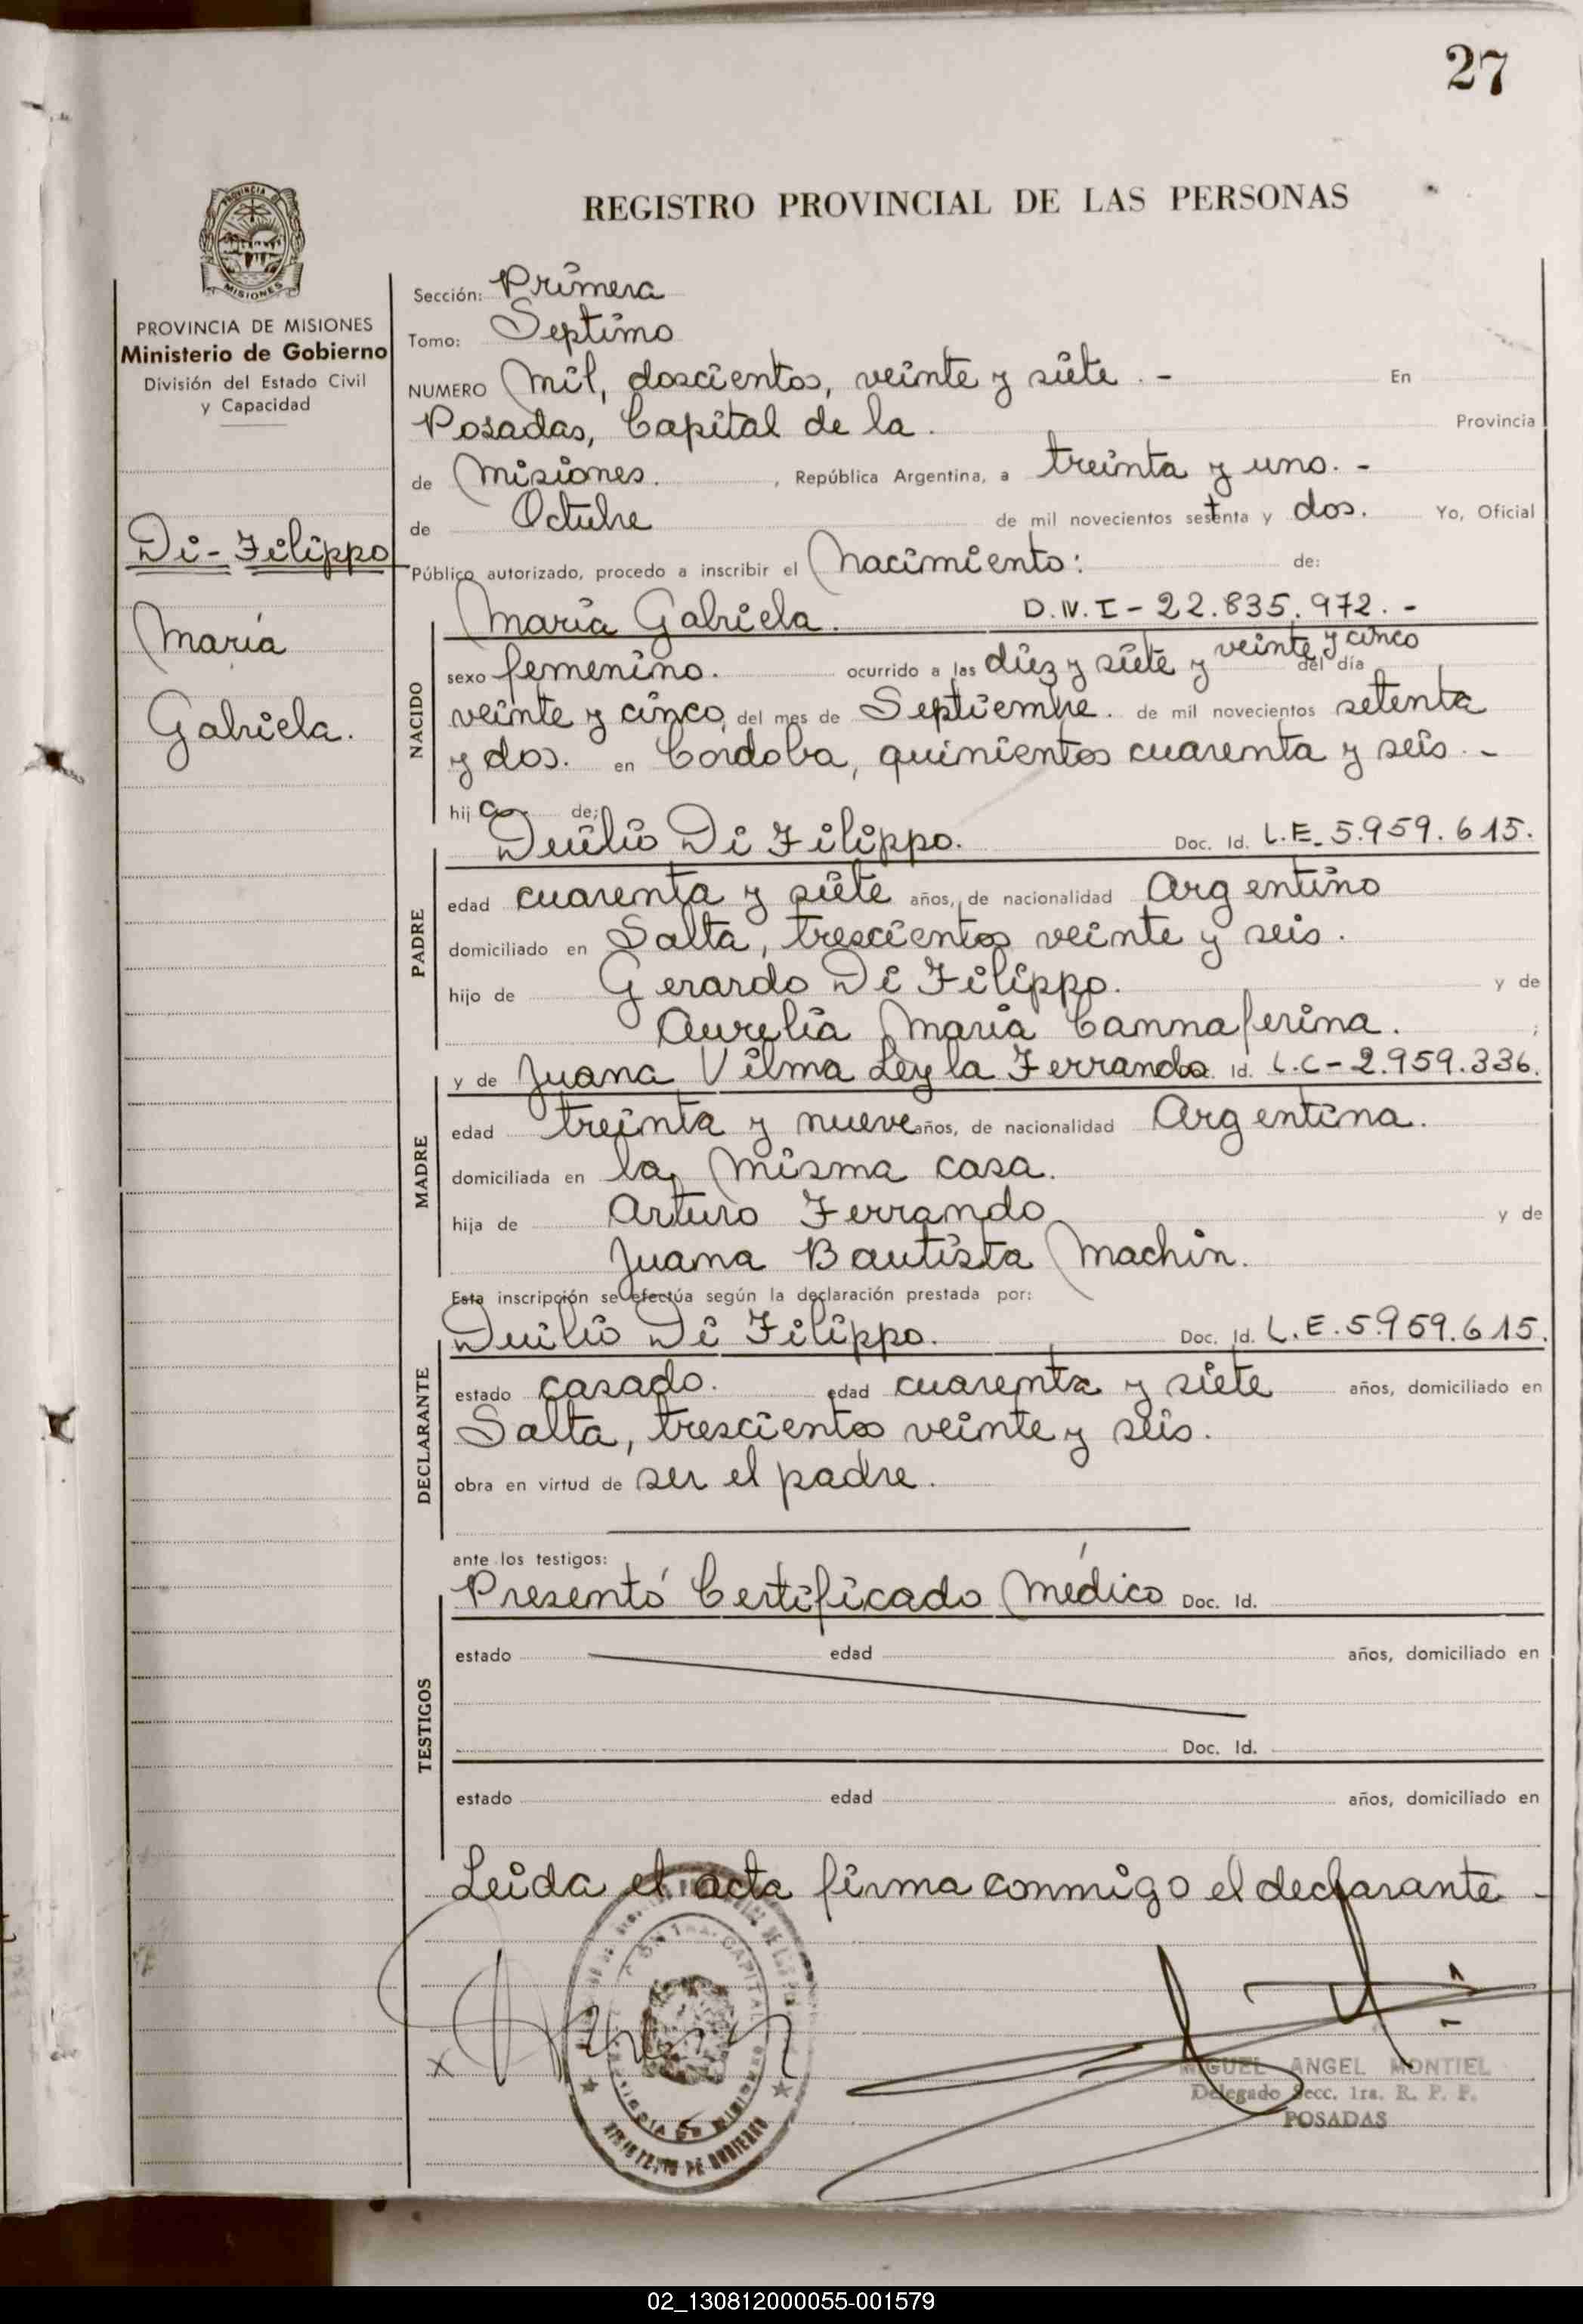 27
REGISTRO PROVINCIAL DE LAS PERSONAS
PROVINCIA
MISIONES
PROVINCIA DE MISIONES
Ministerio de Gobierno
División del Estado Civil
y Capacidad
Di-Filippo
María
Gabriela.
Sección: Primera
Tomo: Septimo
NUMERO Mil, doscientos, veinte y siete.- En
Posadas, Capital de la. Provincia
de Misiones. , República Argentina, a treinta y uno.-
de Octubre de mil novecientos setenta y dos. Yo, Oficial
Público autorizado, procedo a inscribir el Nacimiento: de:
María Gabriela. D.N.I-22.835.972.-
NACIDO
sexo femenino. ocurrido a las diez y siete y veinte y cinco del día
veinte y cinco del mes de Septiembre. de mil novecientos setenta
y dos. en Córdoba, quinientos cuarenta y seis.-
hija de:
Duilio Di Filippo. Doc. Id. L.E. 5.959.615.
PADRE
edad cuarenta y siete años, de nacionalidad Argentino
domiciliado en Salta, trescientos veinte y seis.
hijo de Gerardo Di Filippo. y de
Aurelia María Cannaferina. ;
y de Juana Vilma Leyla Ferrando. Id. L.C-2.959.336.
MADRE
edad treinta y nueve años, de nacionalidad Argentina.
domiciliada en la misma casa.
hija de Arturo Ferrando y de
Juana Bautista Machin.
Esta inscripción se efectúa según la declaración prestada por:
Duilio Di Filippo. Doc. Id. L.E.5.959.615.
DECLARANTE
estado casado. edad cuarenta y siete años, domiciliado en
Salta, trescientos veinte y seis.
obra en virtud de ser el padre.
ante los testigos:
Presentó Certificado Médico Doc. Id.
TESTIGOS
estado edad años, domiciliado en
Doc. Id.
estado edad años, domiciliado en
Leida el acta firma conmigo el declarante-
x
MINISTERIO DE GOBIERNO
MIGUEL ANGEL MONTIEL
Delegado Secc. 1ra. R. P. P.
POSADAS
02_130812000055-001579